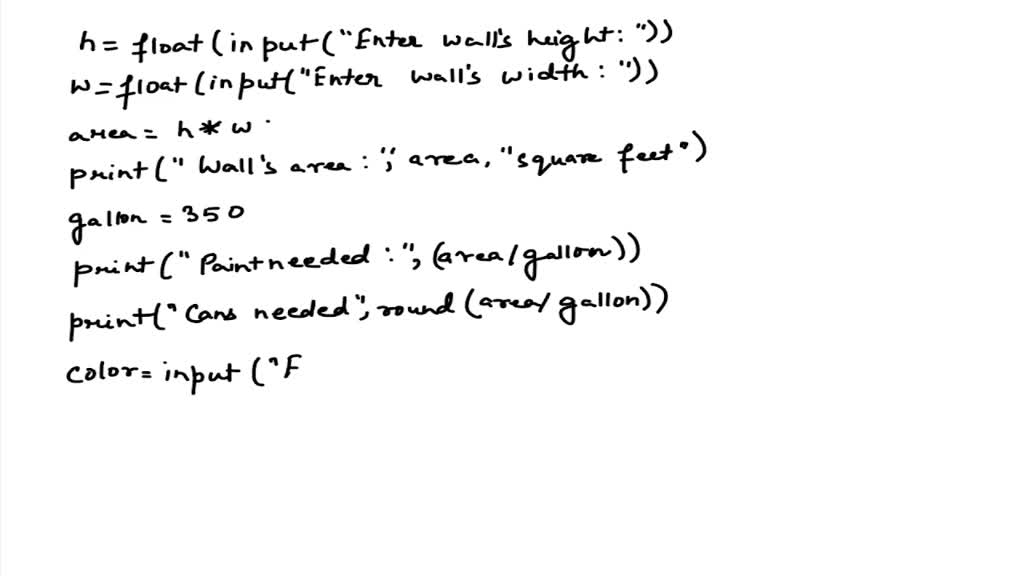 h = float(input("Enter wall's height: "))
w = float(input("Enter wall's width: "))
area = h * w
print("Wall's area:", area, "square feet")
gallon = 350
print("Paint needed:", (area/gallon))
print("Cans needed", round(area/gallon))
color = input("F